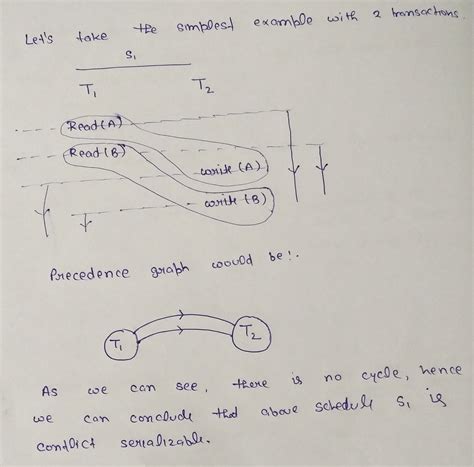 Let's take the simplest example with 2 transactions.
S1
T1 T2
Read(A)
Read(B)
write(A)
write(B)
Precedence graph would be!.
T1 T2
As we can see, there is no cycle, hence
we can conclude that above schedule S1 is
conflict serializable.